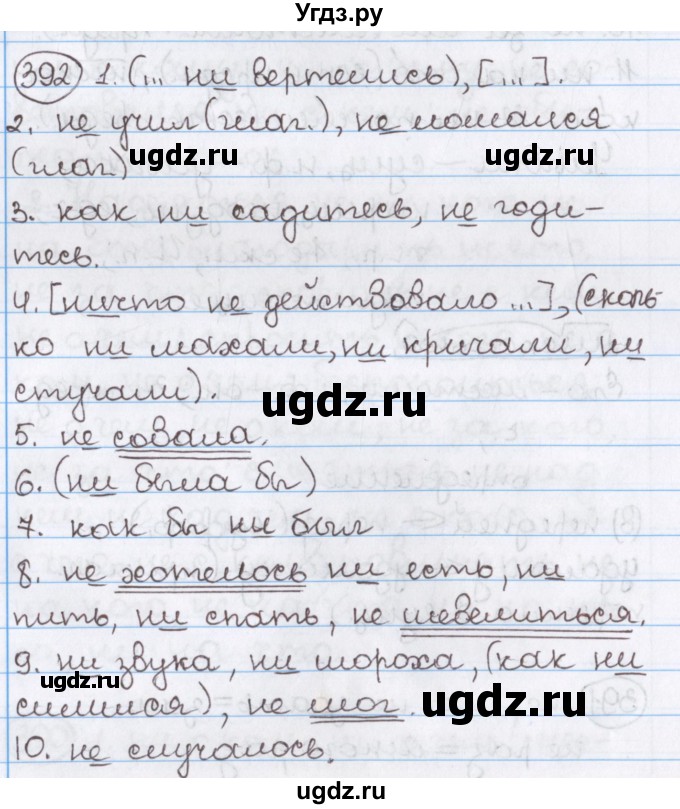 Угдз.ру
392 1. (... ни вертелись), [...].
2. не учил (глаг.), не ломался
(глаг.)
ugdz.ru ugdz.ru
3. как ни садитесь, не годи-
тесь.
4. [ничто не действовало ...], (сколь-
ко ни махали, ни кричали, ни
стучали).
ugdz.ru
5. не совала.
6. (ни была бы)
7. как бы ни был
8. не хотелось ни есть, ни
пить, ни спать, не шевелиться.
9. ни звука, ни шороха, (как ни
ugdz.ru ugdz.ru
силился), не мог.
10. не случалось.
ugdz.ru